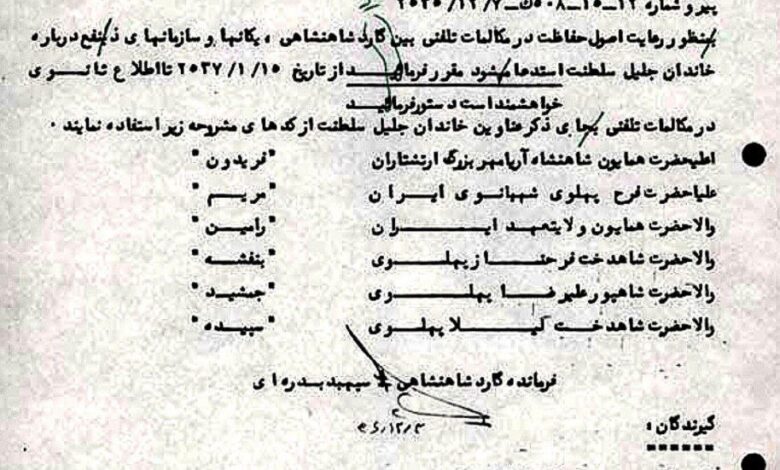 پیرو شماره ۱۲ـ۱۵ـ۵۰۸ـك ـ ۲۵۳۵/۱۲/۷
بمنظور رعایت اصول حفاظت در مکالمات تلفنی بین گارد شاهنشاهی ، یکانها و سازمانهای ذینفع درباره
خاندان جلیل سلطنت استدعا میشود مقرر فرمائیـــد از تاریخ ۲۵۳۷/۱/۱۵ تا اطلاع ثانـوی
خواهشمند است دستور فرمائید
در مکالمات تلفنی بجای ذکر عناوین خاندان جلیل سلطنت از کدهای مشروحه زیر استفاده نمایند .
اعلیحضرت همایون شاهنشاه آریامهر بزرگ ارتشتاران " فریدون "
علیاحضرت فرح پهلوی شهبانوی ایـران " مریـم "
والاحضرت همایون ولایتعهد ایـــــران " رامیـن "
والاحضرت شاهدخت فرحنـــاز پهلـــوی " بنفشه "
والاحضرت شاهپور علیرضـا پهلـــوی " جمشیـد "
والاحضرت شاهدخـت لیـــلا پهلـــوی " سپیـده "
فرمانده گارد شاهنشاهی سپهبد بدره ای
۳۶/۱۲/۳
گیرندگان :